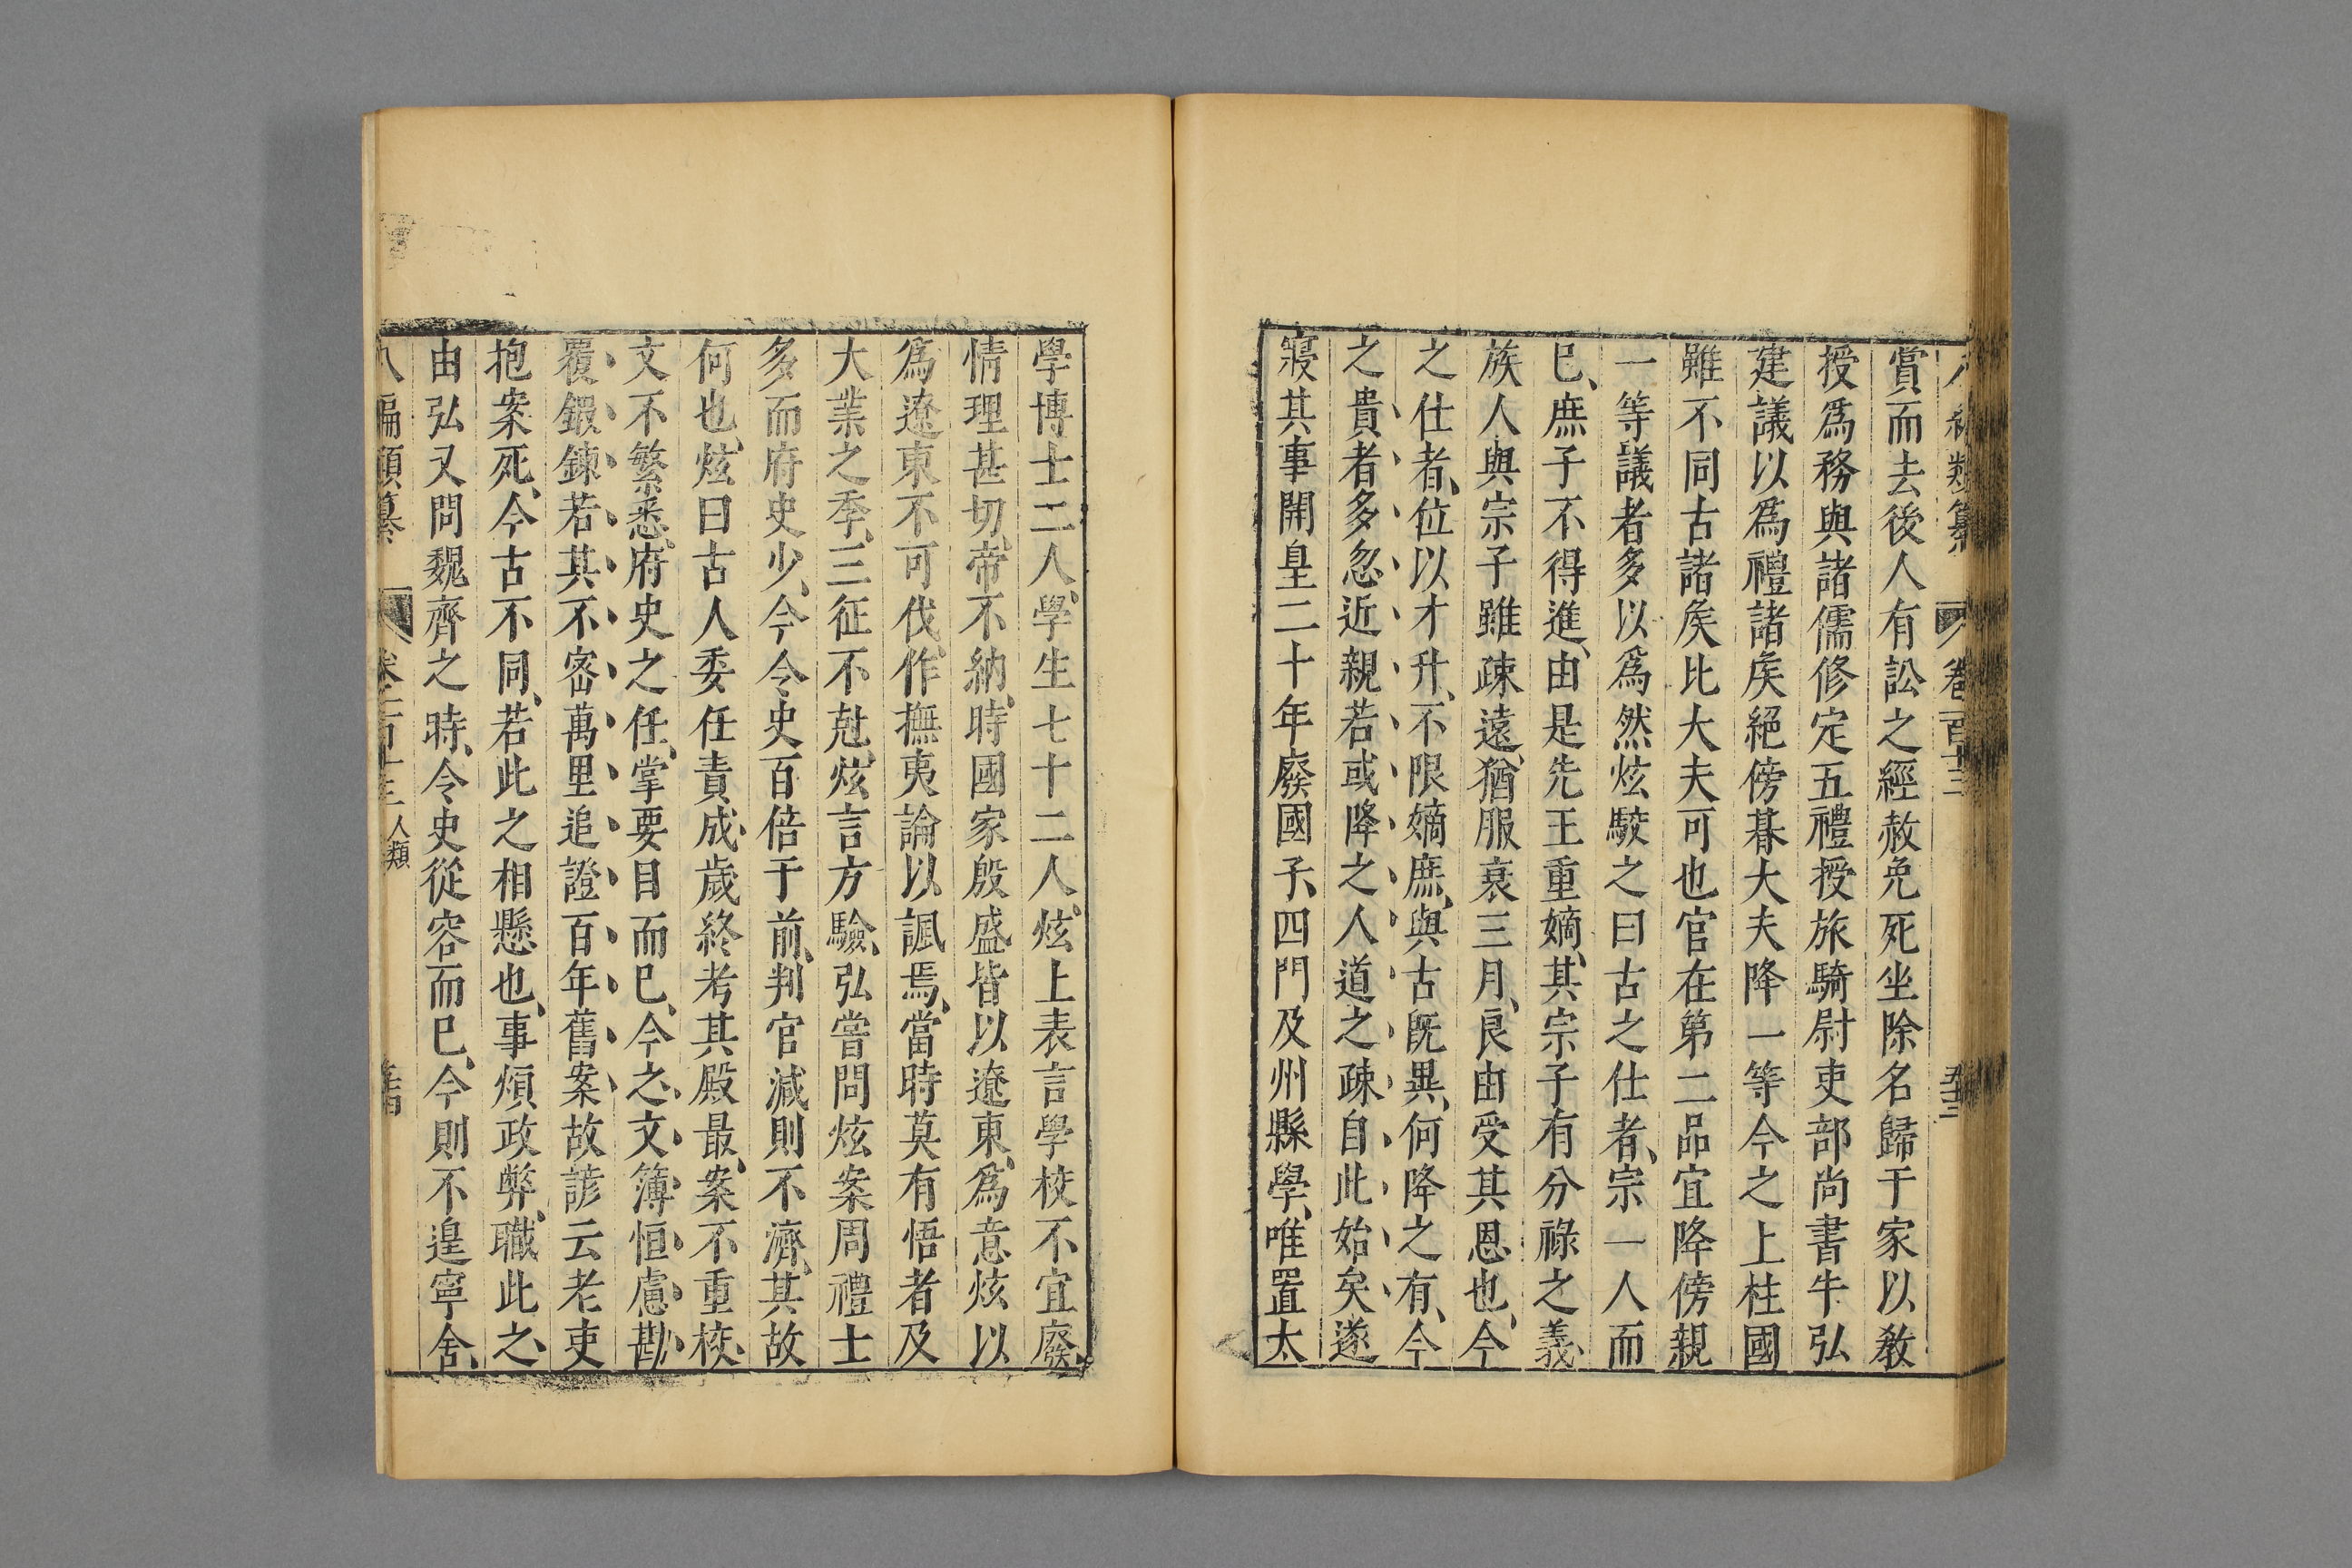 賞而去後人有訟之經赦免死坐除名歸于家以敎
授爲務與諸儒修定五禮授旅騎尉吏部尚書牛弘
建議以爲禮諸矦絕傍朞大夫降一等今之上柱國
雖不同古諸矦比大夫可也官在第二品宜降傍親
一等議者多以爲然炫駁之曰古之仕者宗一人而
已庶子不得進由是先王重嫡其宗子有分祿之義
族人與宗子雖疎遠猶服衰三月良由受其恩也今
之仕者位以才升不限嫡庶與古旣異何降之有今
之貴者多忽近親若或降之人道之疎自此始矣遂
寢其事開皇二十年廢國子四門及州縣學唯置太
學博士二人學生七十二人炫上表言學校不宜廢
情理甚切帝不納時國家殷盛皆以遼東爲意炫以
爲遼東不可伐作撫夷論以諷焉當時莫有悟者及
大業之季三征不尅炫言方驗弘嘗問炫案周禮士
多而府史少今令史百倍于前判官減則不濟其故
何也炫曰古人委任責成歲終考其殿最案不重校
文不繁悉府史之任掌要目而已今之文簿恒慮勘
覆鍛鍊若其不密萬里追證百年舊案故諺云老吏
抱案死今古不同若此之相懸也事煩政弊職此之
由弘又問魏齊之時令史從容而已今則不遑寧舍
八編類纂 卷二百十三 人類